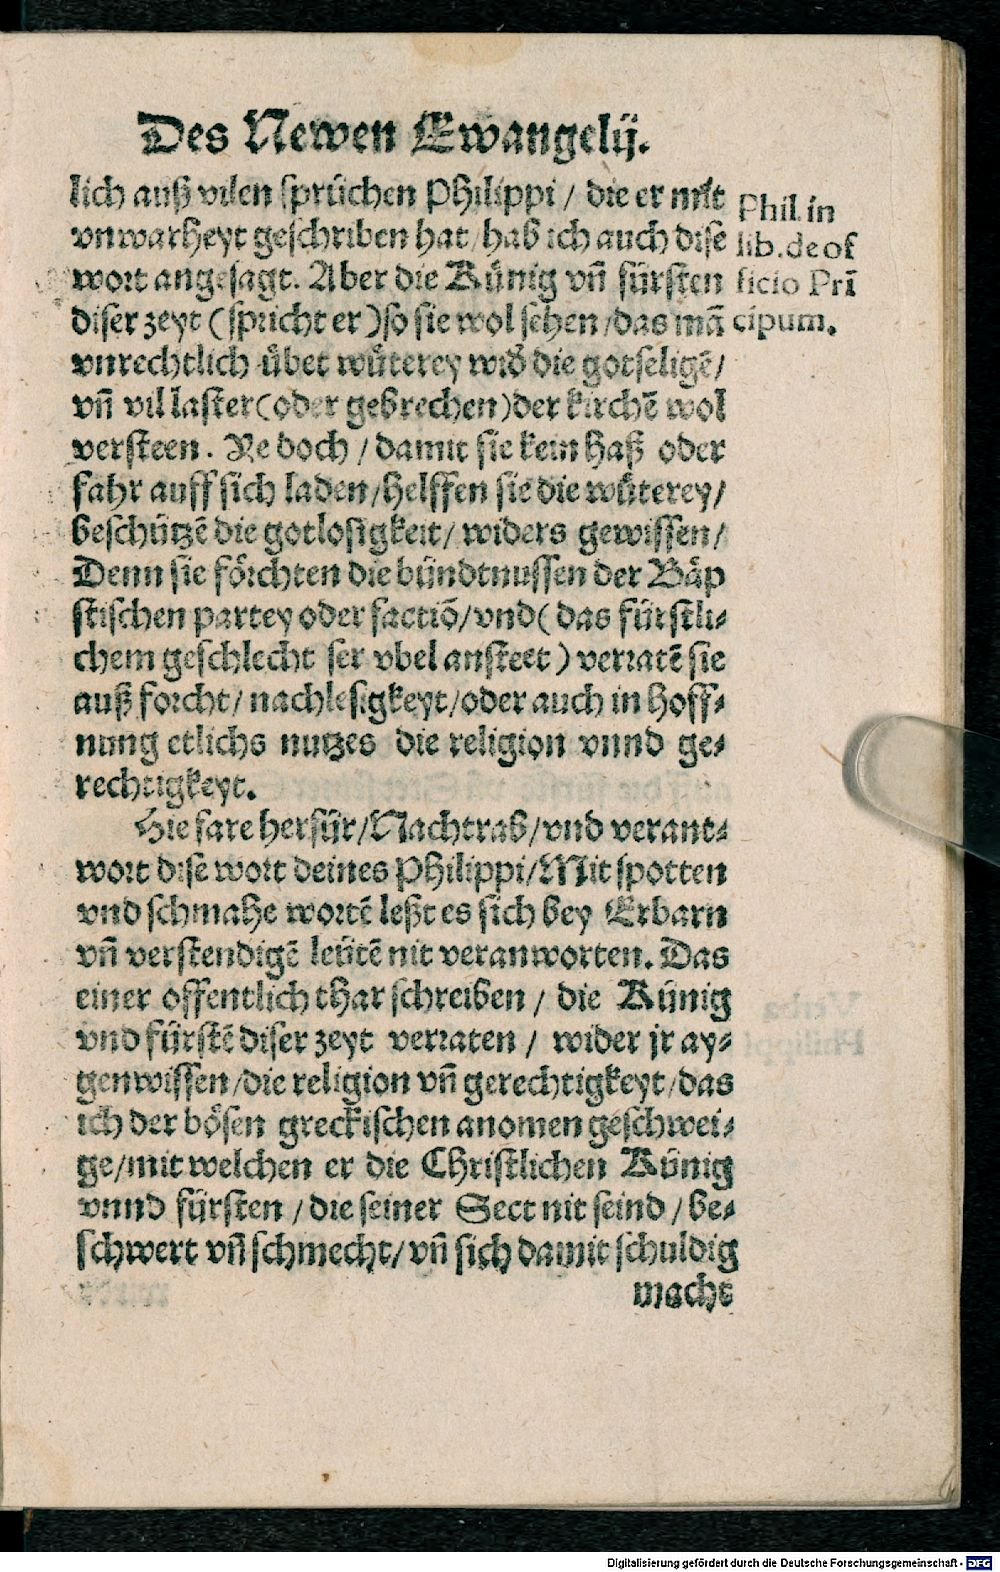 Des Newen Ewangelij.
lich auß vilen sprüchen Philippi / die er mit
vnwarheyt geschriben hat / hab ich auch dise
wort angesagt. Aber die Künig vñ fürsten
diser zeyt ( spricht er ) so sie wol sehen / das mã
vnrechtlich übet wüterey wid̾ die gotseligẽ /
vñ vil laster ( oder gebrechen ) der kirchẽ wol
versteen. Ye doch / damit sie kein haß oder
fahr auff sich laden / helffen sie die wüterey /
beschützẽ die gotlosigkeit / widers gewissen /
Denn sie förchten die bündtnussen der Bäp
stischen partey oder factiõ / vnd ( das fürstli-
chem geschlecht ser vbel ansteet ) verratẽ sie
auß forcht / nachlesigkeyt / oder auch in hoff-
nung etlichs nutzes die religion vnnd ge-
rechtigkeyt.
Hie fare herfür / Nachtrab / vnd verant-
wort dise wort deines Philippi / Mit spotten
vnd schmahe wortẽ leßt es sich bey Erbarn
vñ verstendigẽ leütẽ nit veranworten. Das
einer offentlich thar schreiben / die Künig
vnd fürstẽ diser zeyt verraten / wider jr ay-
genwissen / die religion vñ gerechtigkeyt / das
ich der bösen greckischen anomen geschwei-
ge / mit welchen er die Christlichen Künig
vnnd fürsten / die seiner Sect nit seind / be-
schwert vñ schmecht / vñ sich damit schuldig
macht
Phil. in
lib. de of
ficio Prĩ
cipum.
Digitalisierung gefördert durch die Deutsche Forschungsgemeinschaft - DFG